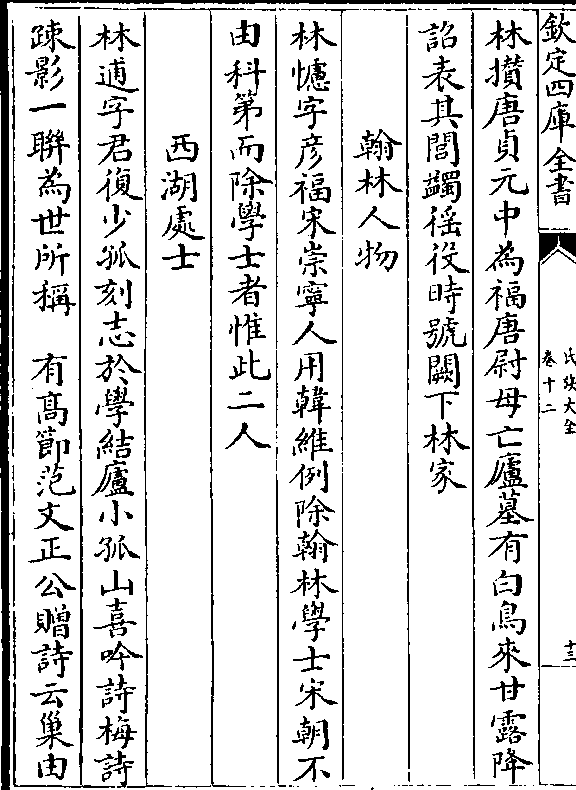 欽定四庫全書
氏族大全
卷十二
十三
林攢唐貞元中為福唐尉母亡廬墓有白烏來甘露降
詔表其閭蠲徭役時號闕下林家
翰林人物
林憓字彦福宋崇寧人用韓維例除翰林學士宋朝不
由科第而除學士者惟此二人
西湖處士
林逋字君復少孤刻志於學結廬小孤山喜吟詩梅詩
疎影一聯為世所稱　有髙節范文正公贈詩云巢由